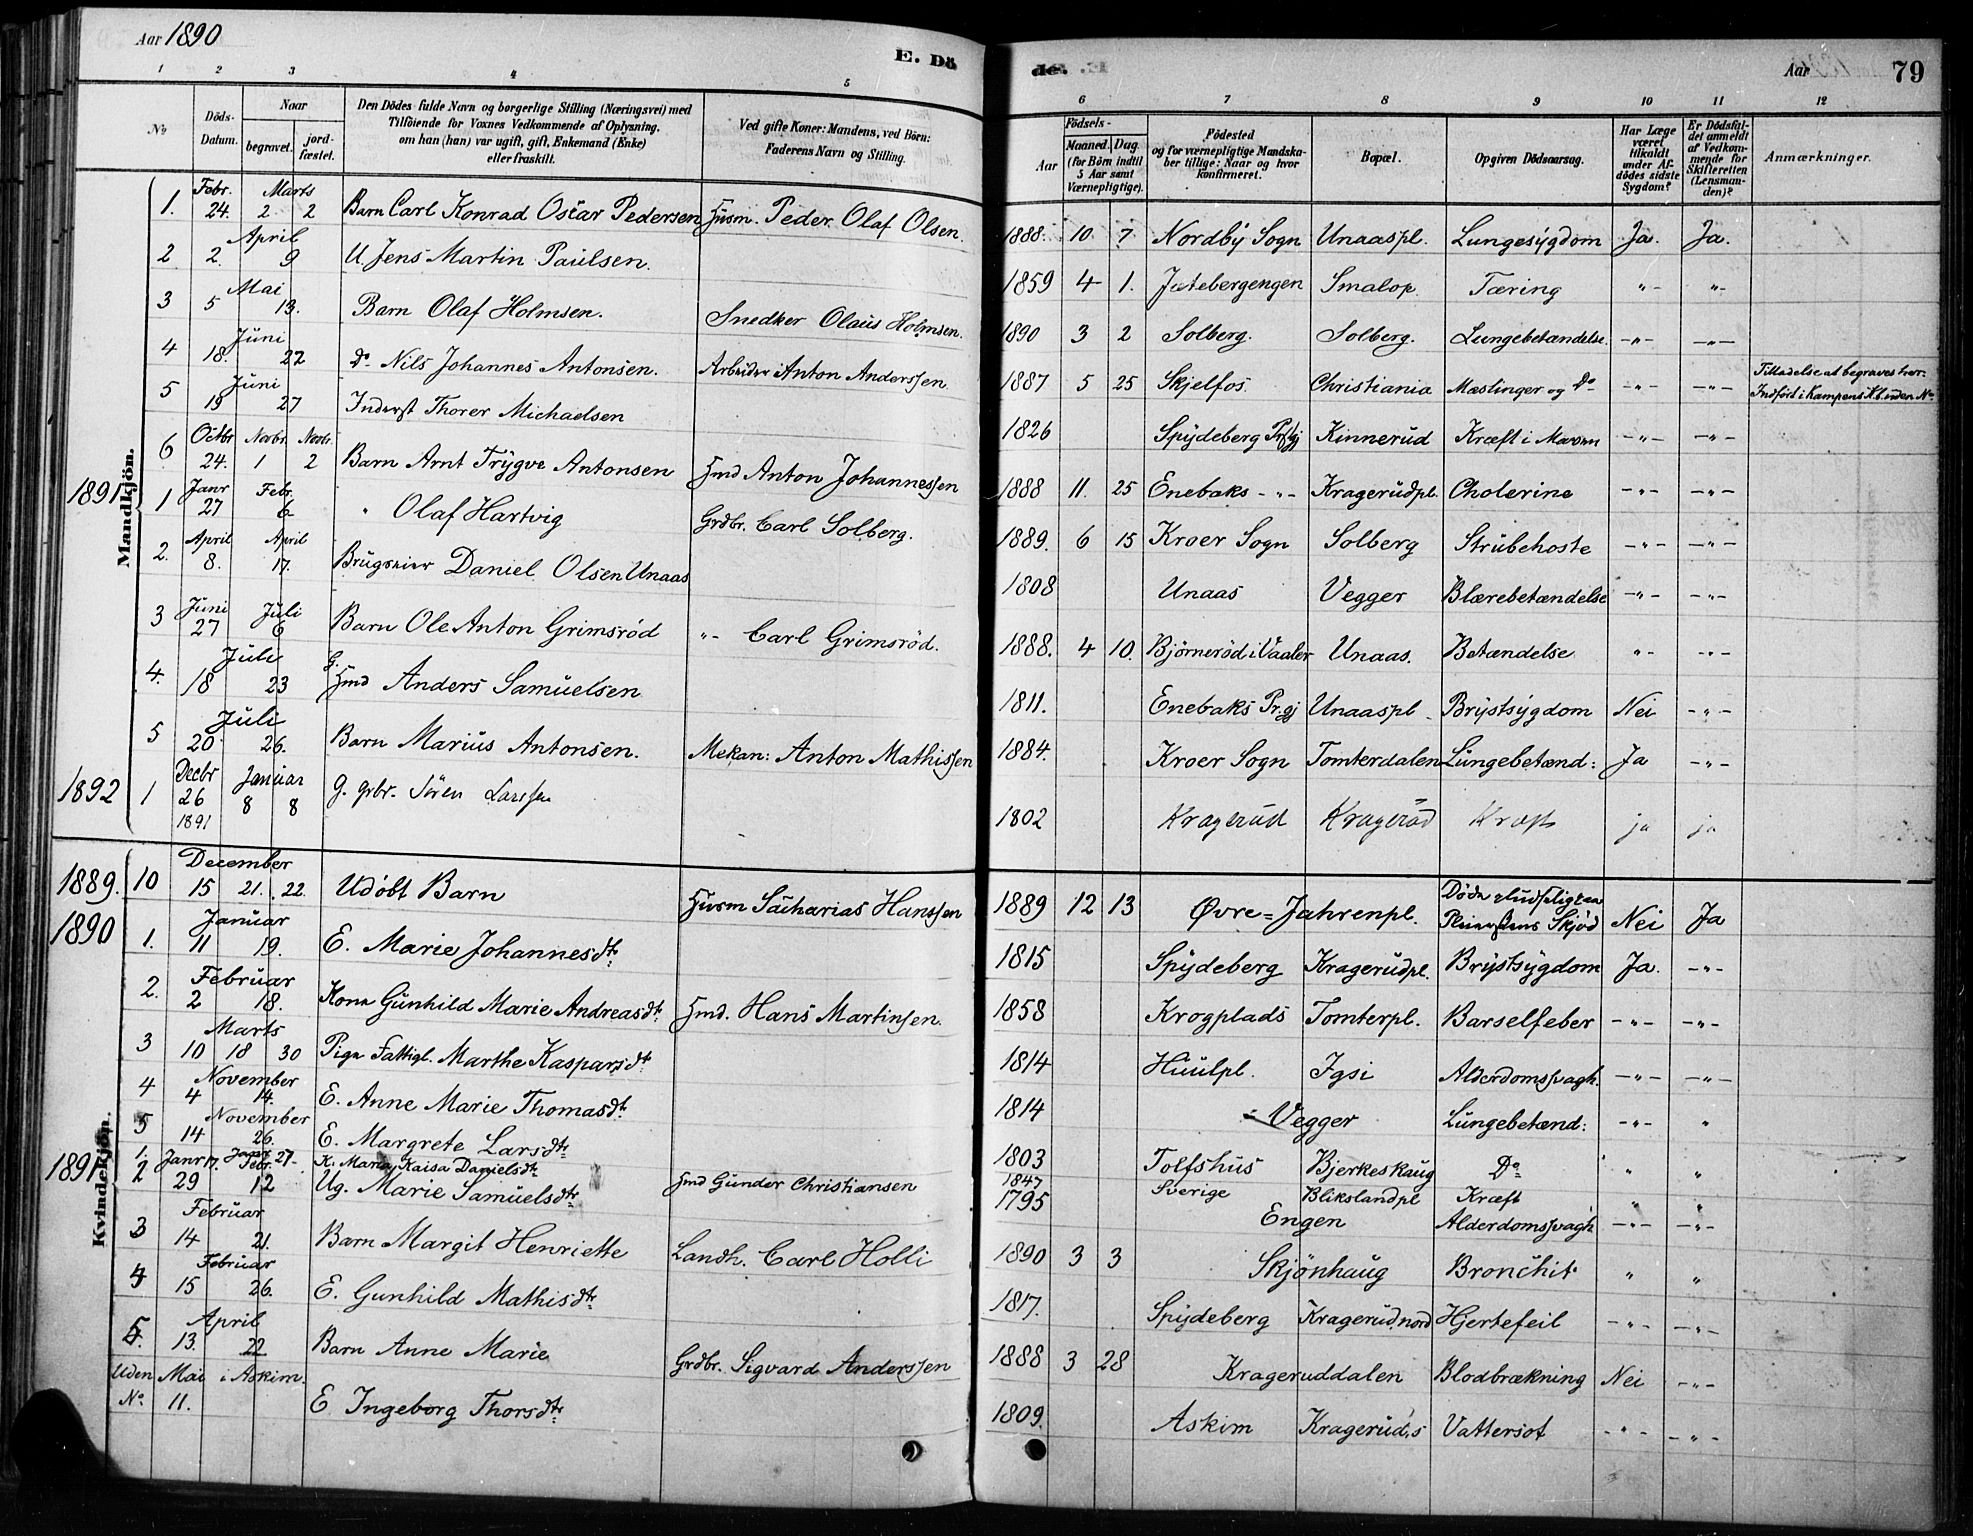 Aar 1890 E. Dö de. Aar 79
1 2 3 4 5 6 7 8 9 10 11 12
No Döds-Datum. Naar begravet. jordfæstet. Den Dödes fulde Navn og borgerlige Stilling (Næringsvei) med Tilföiende for Voxnes Vedkommende af Oplysning, om han (hun) var ugift, gift, Enkemand (Enke) eller fraskilt. Ved gifte Koner: Mandens, ved Börn: Faderens Navn og Stilling. Födsels- Aar Maaned. Dag. (for Börn indtil 5 Aar samt Værnepligtige). Födested og for værnepligtige Mandskaber tillige: Naar og hvor konfirmeret. Bopæl. Opgiven Dödsaarsag. Har Læge været tilkaldt under Afdödes sidste Sygdom? Er Dödsfaldet anmeldt af Vedkommende for Skifteretten (Lensmanden)? Anmærkninger.
Mandkjön.
1. Febr. 24. Marts 2 2 Barn Carl Konrad Oscar Pedersen Husm. Peder Olaf Olsen. 1888. 10 7 Nordby Sogn Unaaspl. Lungesygdom Ja. Ja.
2 2. April 9 U. Jens Martin Paulsen. 1859 4 1. Smalop Tæring -"- -"-
3 5 Mai 13. Barn Olaf Holmsen. Snedker Olaus Holmsen. 1890 3 2 Solberg. Solberg. Lungebetændelse. -"- -"-
4 18. Juni 22 Do Nils Johannes Antonsen. Arbeider Anton Anderssen 1887 5 25 Skjelfos Christiania Mæslinger og Do -"- -"- Tilladelse at begraves her. Indført i Kampens K.b. uden No
5 19 Juni 27 Inderst Thorer Michaelsen 1826 Spydeberg Prgj Kinnerud Kræft i Maven -"- -"-
6 Octbr 24. Novbr. 1 Novbr. 2 Barn Arnt Trygve Antonsen Hmd Anton Johannessen 1888 11. 25 Enebaks -"- Kragerudpl. Cholerine -"- -"-
1891 1 Janr 27 Febr. 6 " Olaf Hartvig Grdbr. Carl Solberg. 1889. 6 15 Kroer Sogn Solberg Strubehoste -"- -"-
2. April 8. April 17. Daniel Olsen Unaas 1808 Unaas Vegger Blærebetændelse -"- -"-
3 Juni 27 Juli 6 Barn Ole Anton Grimsrød "- Carl Grimsrød. 1888. 4 10. Bjørnerød i Vaaler Unaas. Betændelse "- -"-
4. 18 Juli 23 G. Hmd Anders Samuelsen 1811. Enebaks Prgj Unaaspl - Brystsygdom Nei -"-
5 20 Juli 26. Barn Marius Antonsen. Mekan: Anton Mathissen 1884. Kroer Sogn Tomterdalen Lungebetænd: Ja -"-
1892 1 Decbr 26 1891 Januar 8 8 G. grbr. Sören Larssen 1802 Kragerud Kragerød Kræft ja ja
Kvindekjön.
1889. 10 December 15 21. 22. Udøbt Barn Husm Sacharias Hanssen 1889 12 13 Øvre=Jahrenpl. Skjød Nei Ja
1890 1. 11 Januar 19. E. Marie Johannesdtr. 1815 Spydeberg Kragerudpl. Brystsygdom Ja. -"-
2. 2 Februar 18. Kone Gunhild Marie Andreasdtr. Hmd. Hans Martinsen. 1858 Krogplads Tomterpl. Barselfeber -"- -"-
3 Marts 10 18 30 Pige Fattigl. Marthe Kaspersdtr 1814 Huulpl. Igsi Alderdomssvagh. -"- -"-
4 4 November 14. E. Anne Marie Thomasdtr. 1814 Vegger Lungebetænd: -"- "
5 14 November 26. E. Margrete Larsdtr. 1803 Tolfshus Bjerkeskaug Do " "
1891 1. Janr 17. Janr 27- K. Maria Kaisa Danielsdtr. Hmd Gunder Christiansen 1847 Sverige Blikslandpl Kræft " "
2 29 Febr. 12 Ug. Marie Samuelsdtr 1795 Engen Alderdomssvagh -"- -"-
3 14 Februar 21. Barn Margit Henriette Landh. Carl Holli 1890 3 3 Skjönhaug Bronchit. " "
4 15 Februar 26. E. Gunhild Mathisdtr. 1817. Spydeberg Kragerud, nord Hjertefeil -"- -"-
5. 13. April 22 Barn Anne Marie Grdbr. Sigvard Anderssen 1888 3 28 Krageruddalen Blodbrækning Nei -"-
Uden No Mai 11. i Askim. E Ingeborg Thorsdtr. 1809. Askim Kragerud, s Vattersot -"- -"-